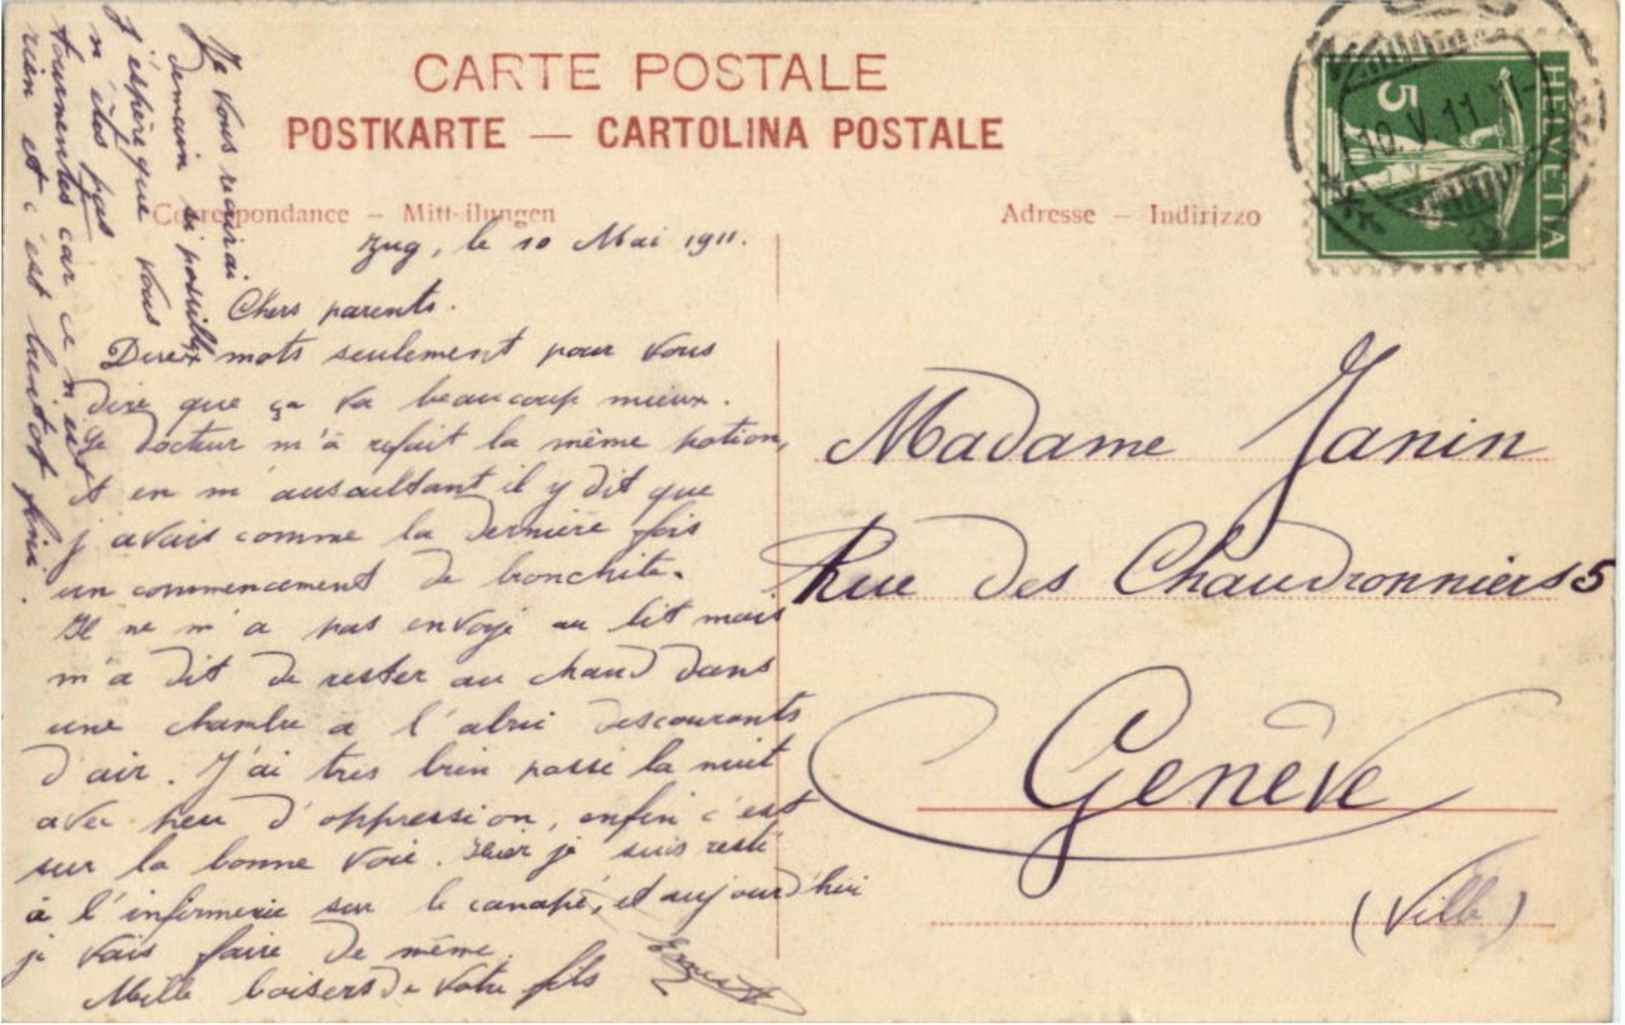 CARTE POSTALE
POSTKARTE — CARTOLINA POSTALE
Correspondance – Mitteilungen
Adresse – Indirizzo
HELVETIA
5
10. V. 11
Zug, le 10 Mai 1911.
Chers parents.
Deux mots seulement pour vous
dire que ça va beaucoup mieux.
Le docteur m'a refait la même potion,
et en m'auscultant il y dit que
j'avais comme la dernière fois
un commencement de bronchite.
Il ne m'a pas envoyé au lit mais
m'a dit de rester au chaud dans
une chambre à l'abri des courants
d'air. J'ai très bien passé la nuit
avec peu d'oppression, enfin c'est
sur la bonne voie. Hier je suis resté
à l'infirmerie sur le canapé, et aujourd'hui
je vais faire de même.
Mille baisers de votre fils
Ernest
Je vous récrirai
demain si possible
J'espère que vous
n'êtes pas
tourmentés car ce n'est
rien et c'est bientôt fini.
Madame Janin
Rue des Chaudronniers 5
Genève
(Ville)